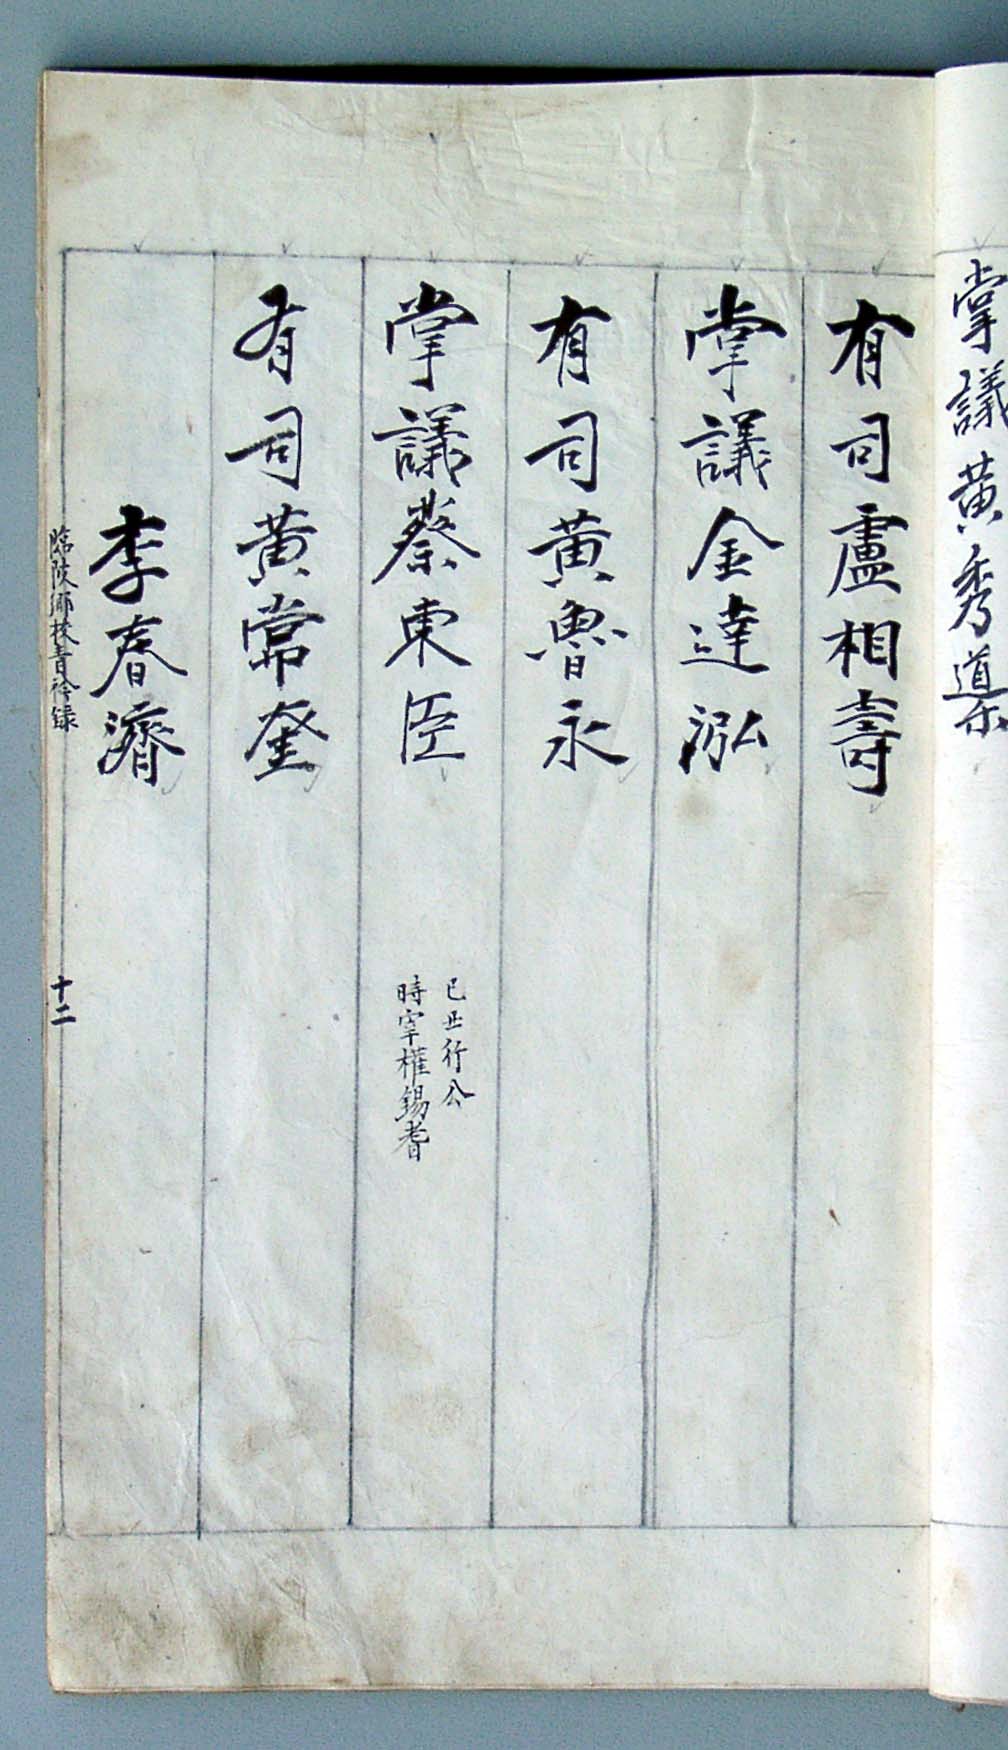 掌議黃秀
有司盧相壽
掌議金達泓
有司黃魯永
掌議蔡東臣
己丑行公
時宰權錫耆
有司黃常奎
李春濟
臨陂鄕校靑衿錄
十二